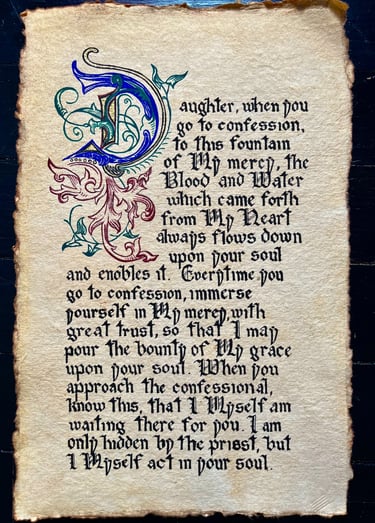 Daughter, when you
go to confession,
to this fountain
of My mercy, the
Blood and Water
which came forth
from My Heart
always flows down
upon your soul
and enobles it. Everytime you
go to confession, immerse
yourself in My mercy, with
great trust, so that I may
pour the bounty of My grace
upon your soul. When you
approach the confessional,
know this, that I Myself am
waiting there for you. I am
only hidden by the priest, but
I Myself act in your soul.